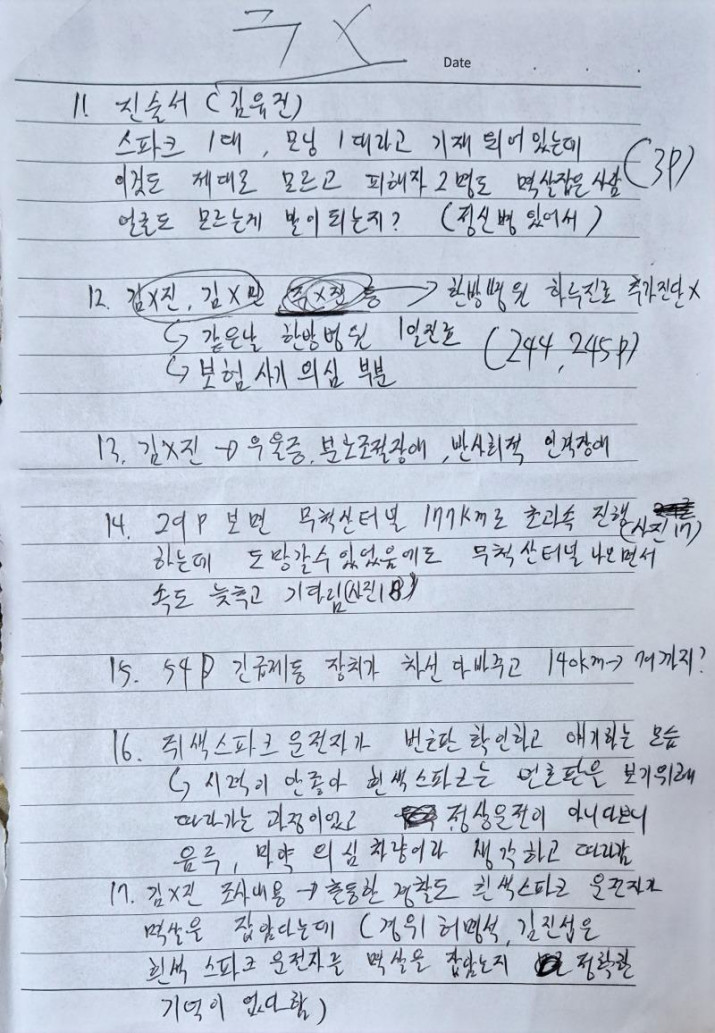 구X
Date
11. 진술서 (김유진)
스파크 1대, 모닝 1대라고 기재 되어 있는데
이것도 제대로 모르고 피해자 2명도 멱살잡은 사람 (3P)
얼굴도 모르는게 말이되는지? (정신병 있어서)
12. 김X진, 김X민 주X진 등 → 한방병원 하루진료 추가진단X
↳ 같은날 한방병원 1일진료 (244, 245P)
↳ 보험사기 의심 부분
13. 김X진 → 우울증, 분노조절장애, 반사회적 인격장애
14. 29P 보면 무척산터널 177km로 초과속 진행 (사진17)
하는데 도망갈수 있었음에도 무척산터널 나오면서
속도 늦추고 기다림(사진18)
15. 54P 긴급제동 장치가 차선 다바꾸고 140km → 까지?
16. 쥐색스파크 운전자가 번호판 확인하고 얘기하는 모습
↳ 시력이 안좋아 흰색스파크는 번호판을 보기위해
따라가는 과정이었고 정상운전이 아니다보니
음주, 마약 의심 차량이라 생각하고 따라감
17. 김X진 조사내용 → 출동한 경찰도 흰색스파크 운전자가
멱살을 잡았다는데 (경위 허명석, 김진섭은
흰색 스파크 운전자를 멱살을 잡았는지 정확한
기억이 없다함)